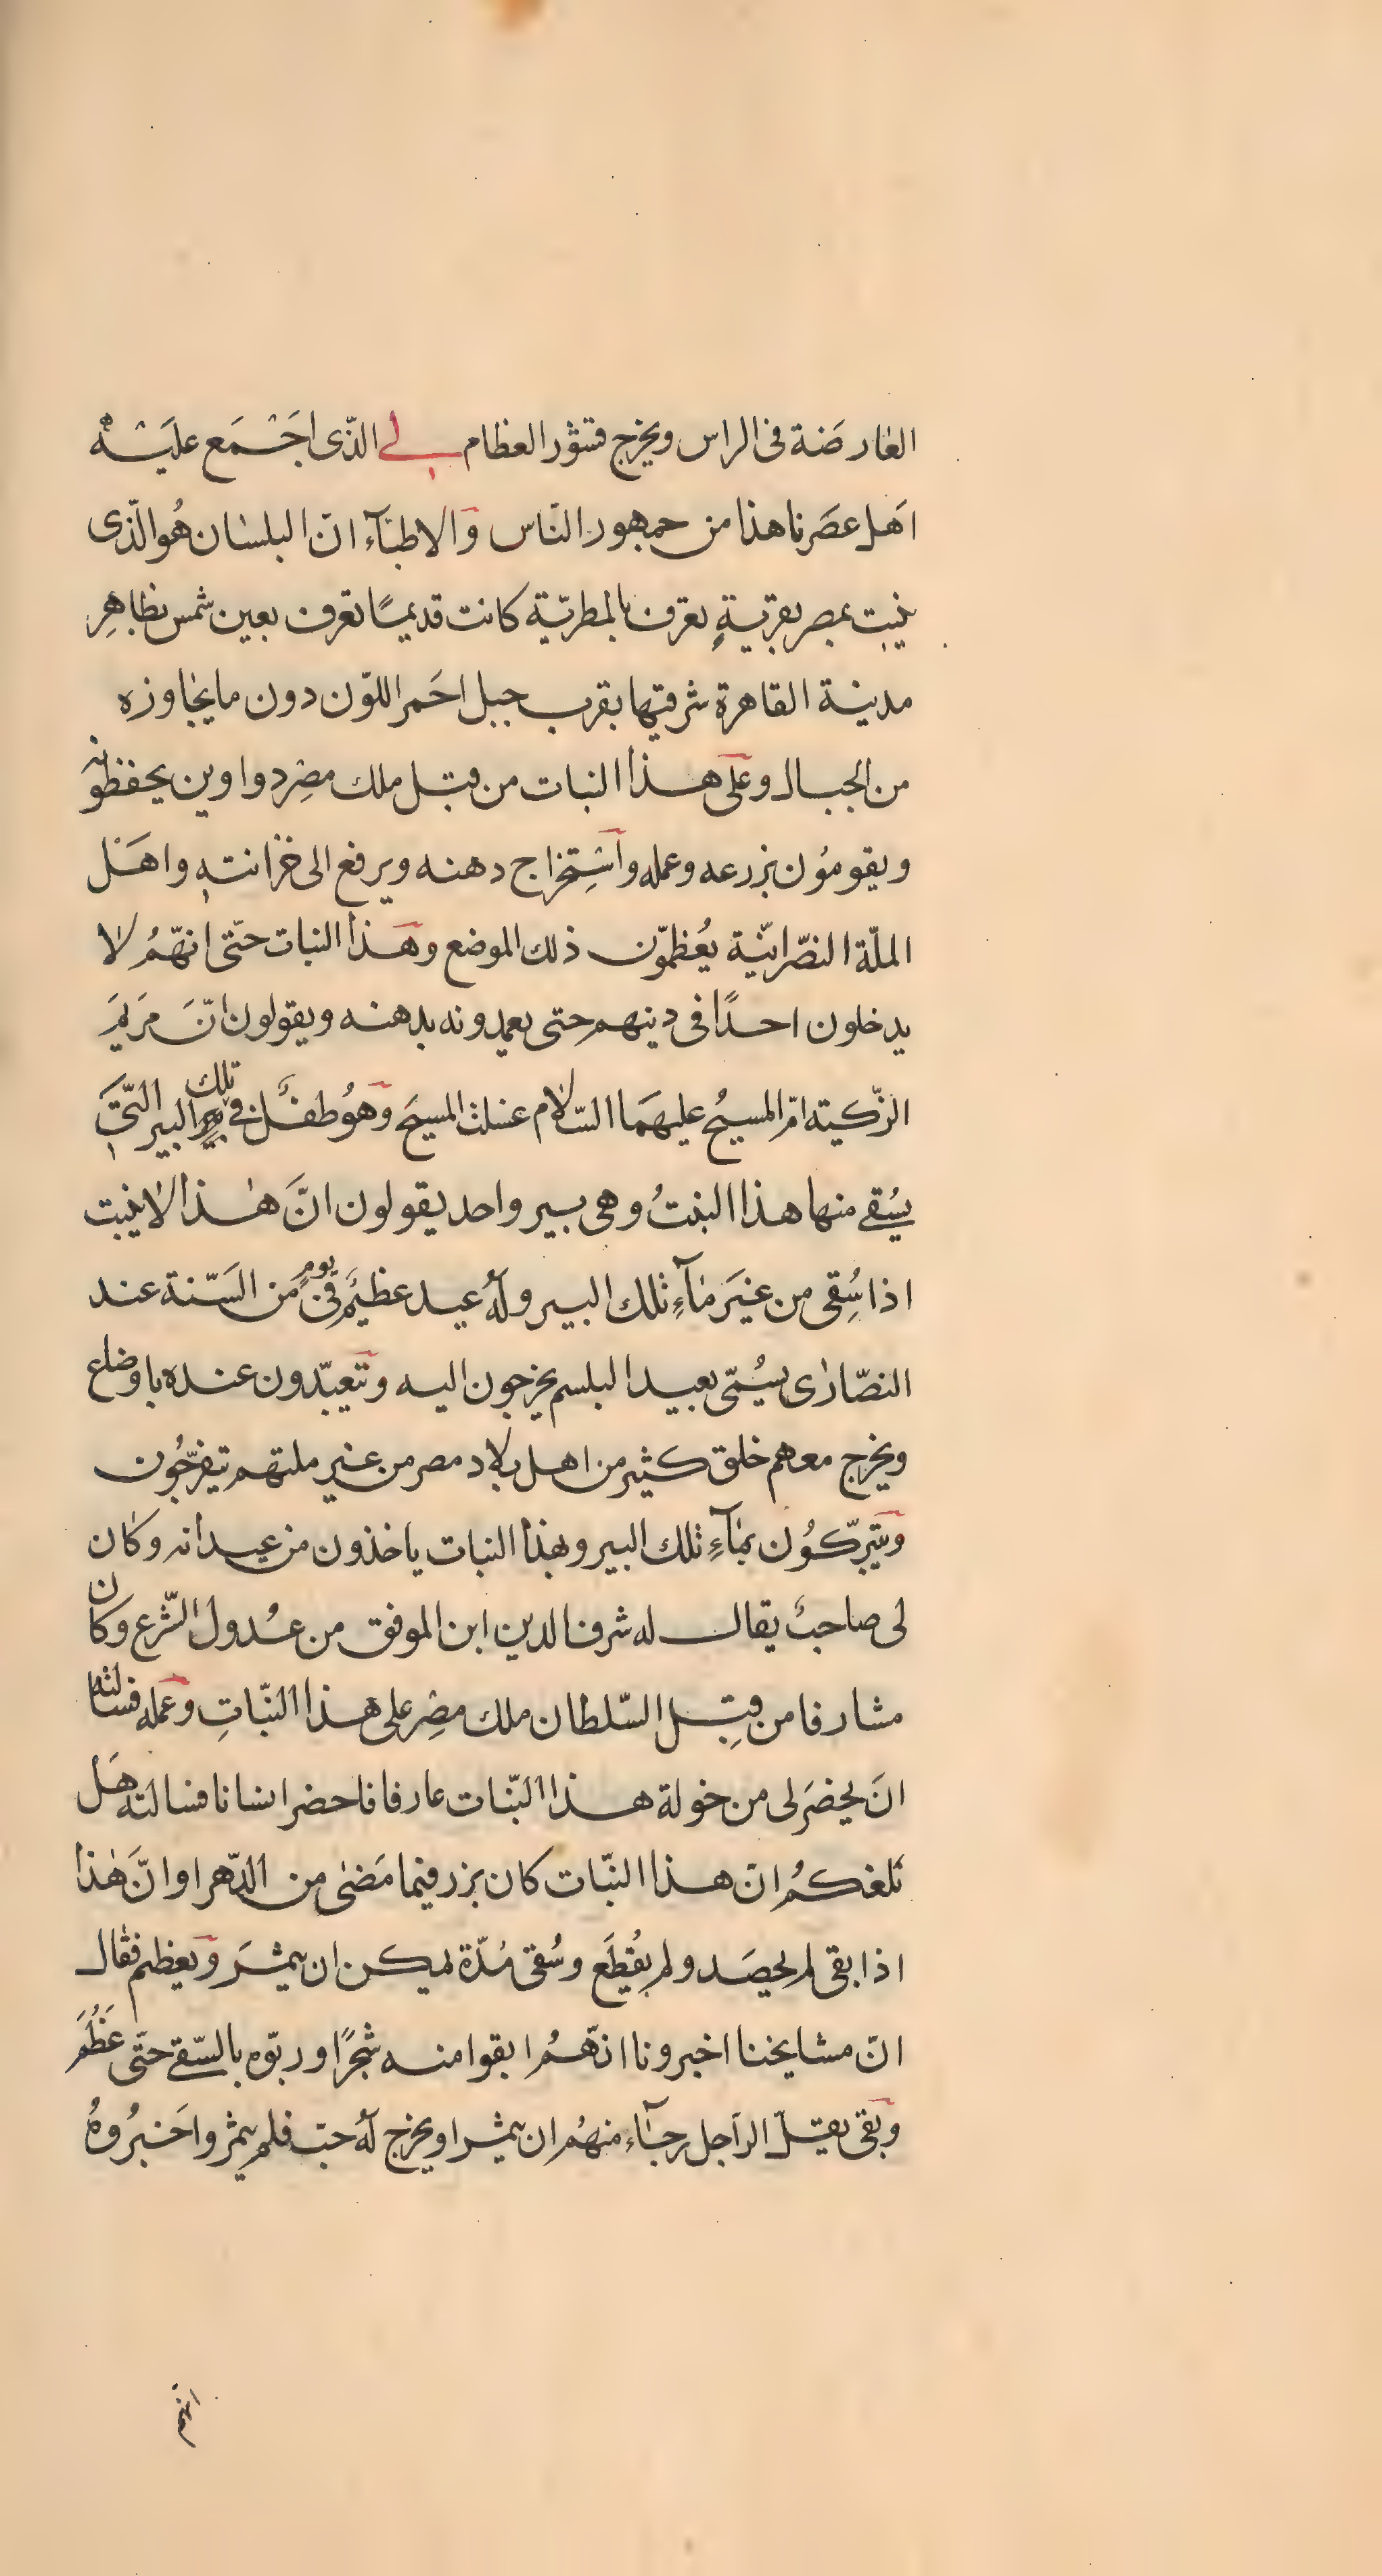 العارضة فى الراس ويخرج قشور العظام لى الذى اجتمع عليه
اهل عصرنا هذا من جمهور الناس والاطباء ان البلسان هو الذى
ينبت بمصر بقرية يعرف بالمطرية كانت قديما تعرف بعين شمس بظاهر
مدينة القاهرة شرقيها بقرب جبل احمر اللون دون ما يجاوزه
من الجبال وعلى هذا النبات من قبل ملك مصر دواوين يحفظونه
ويقومون بزرعه وعمله واستخراج دهنه ويرفع الى خزانته واهل
الملة النصرانية يعظمون ذلك الموضع وهذا النبات حتى انهم لا
يدخلون احدا فى دينهم حتى يعمدونه بدهنه ويقولون ان مريم
الزكية ام المسيح عليهما السلام غسلت المسيح وهو طفل فى تلك البير التى
يسقى منها هذا النبت وهى بير واحد يقولون ان هذا لا ينبت
اذا سقى من غير ماء تلك البير وله عيد عظيم فى يوم من السنة عند
النصارى يسمى بعيد البلسم يخرجون اليه وتتعبدون عنده باوضاع
ويخرج معهم خلق كثير من اهل بلاد مصر من غير ملتهم تيفرجون
ويتبركون بماء تلك البير وبهذا النبات ياخذون من عيدانه وكان
لى صاحب يقال له شرف الدين ابن الموفق من عدول الشرع وكان
مشارفا من قبل السلطان ملك مصر على هذا النبات وعمله فسالته
ان يحضر لى من خولة هذا النبات عارفا فاحضر انسانا فسالته هل
بلغكم ان هذا النبات كان بزر فيما مضى من الدهر او ان هذا
اذا بقى لم يحصد ولم يقطع وسقى مدة يمكن ان يثمر ويعظم فقال
ان مشايخنا اخبرونا انهم ابقوا منه شجرا وربوه بالسقى حتى عظم
وبقى يقل الراجل رجاء منهم ان يثمر او يخرج له حب فلم يثمر واخبروه
انهم